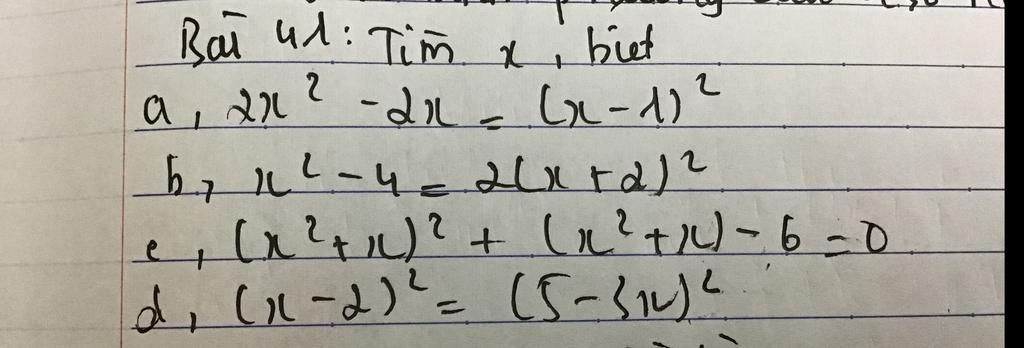 Bài 41: Tìm x, biết
a, 2x² - 2x = (x - 1)²
b, x² - 4 = 2(x + 2)²
c, (x² + x)² + (x² + x) - 6 = 0
d, (x - 2)² = (5 - 3x)²